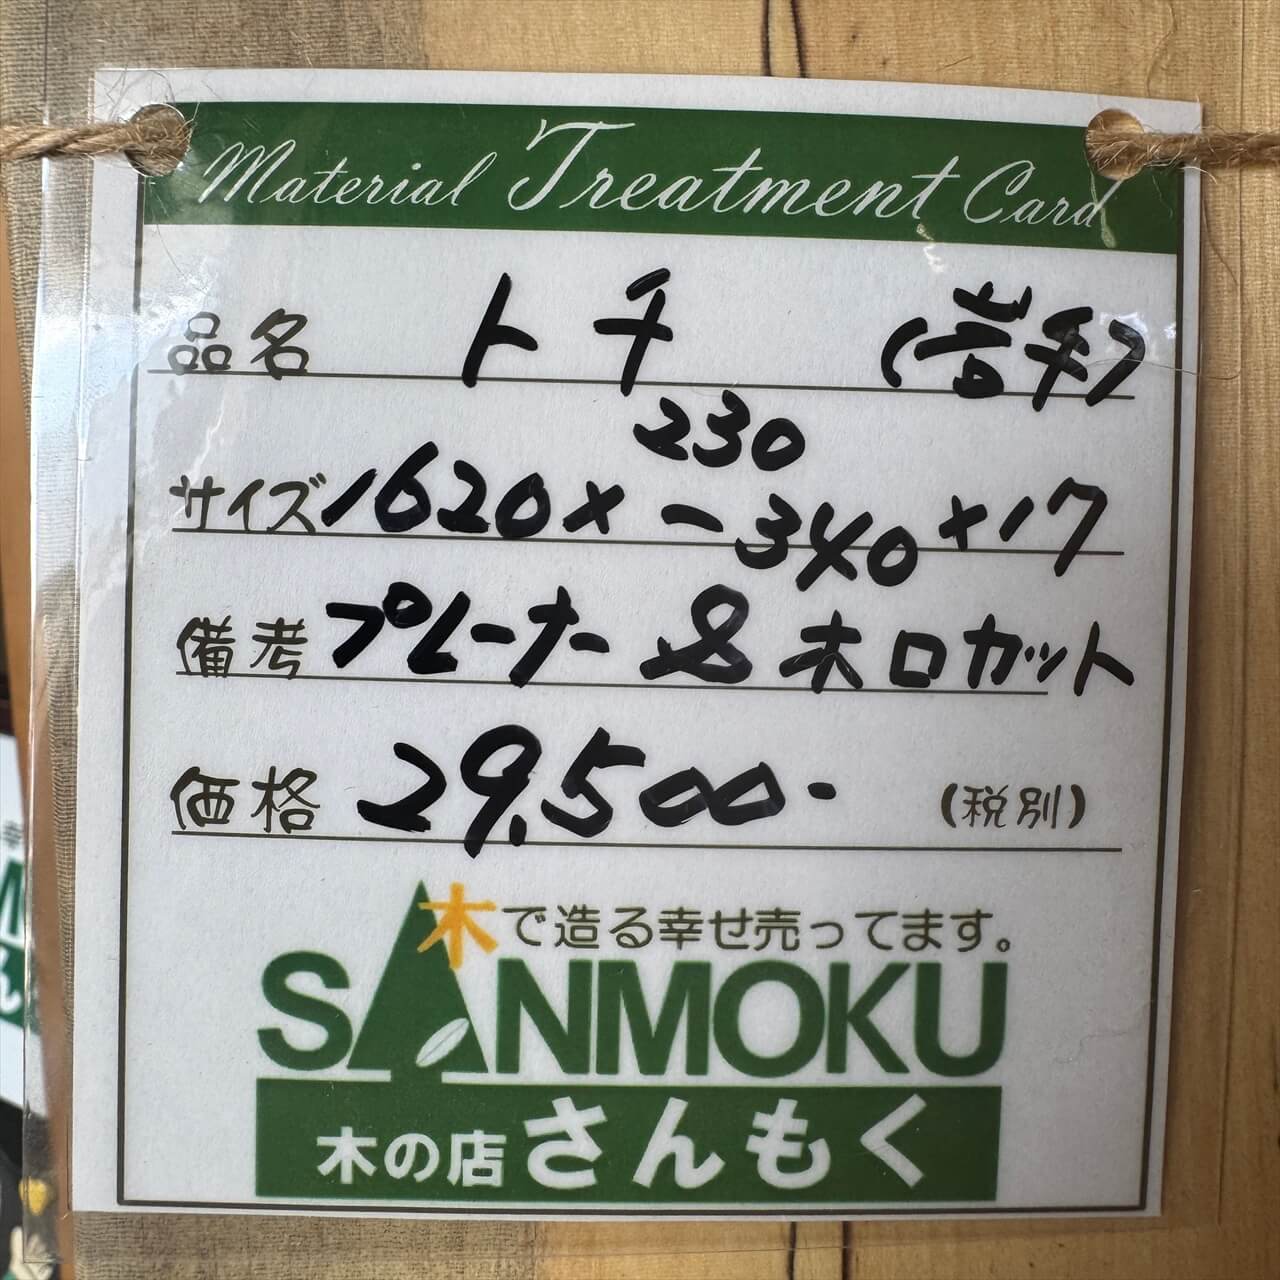 Material Treatment Card
品名 トチ (岩手)
230
サイズ 1620×〜340×17
備考 プレーナー&木口カット
価格 29,500- (税別)
木で造る幸せ売ってます。
SANMOKU
木の店 さんもく